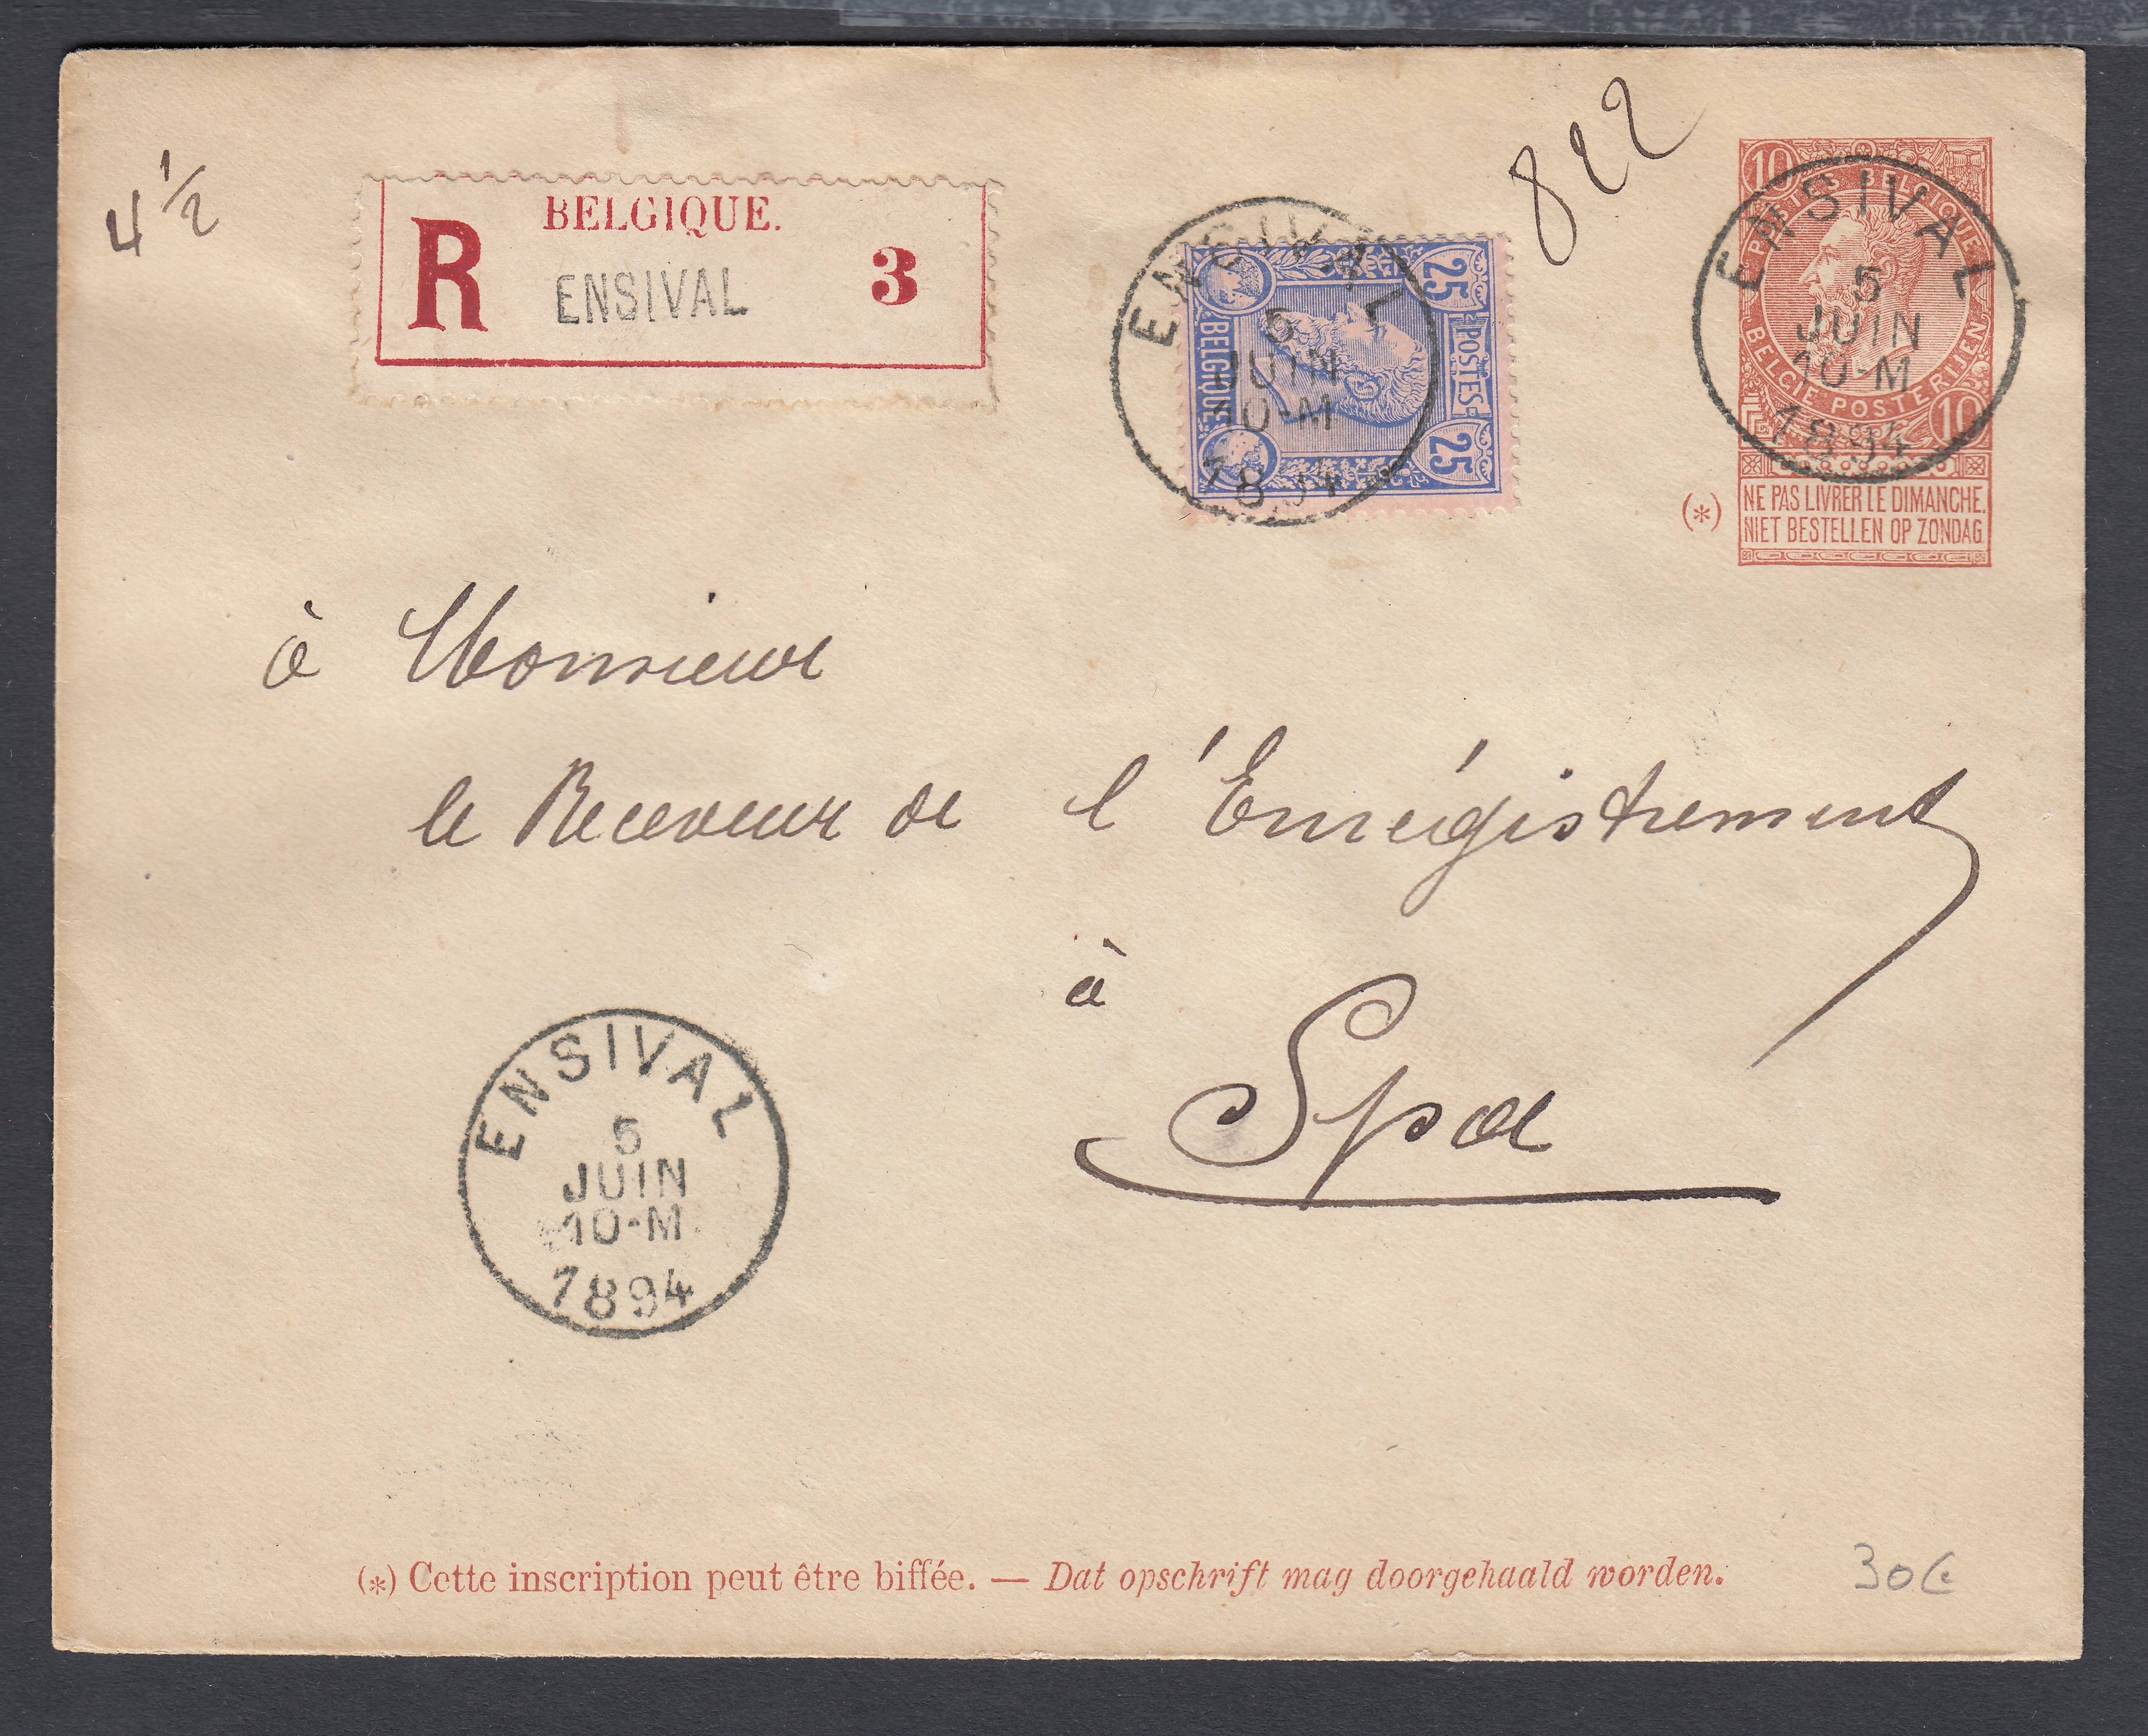 4 1/2
BELGIQUE.
R ENSIVAL 3
822
ENSIVAL
5
JUIN
10-M
1894
25 25
POSTES
BELGIQUE
ENSIVAL
5
JUIN
10-M
1894
10
POSTES BELGIQUE
BELGIE POSTERIJEN
10
(*) NE PAS LIVRER LE DIMANCHE.
NIET BESTELLEN OP ZONDAG
à Monsieur
le Receveur de l'Enrégistrement
à
Spa
ENSIVAL
5
JUIN
10-M
1894
(*) Cette inscription peut être biffée. — Dat opschrift mag doorgehaald worden.
30€